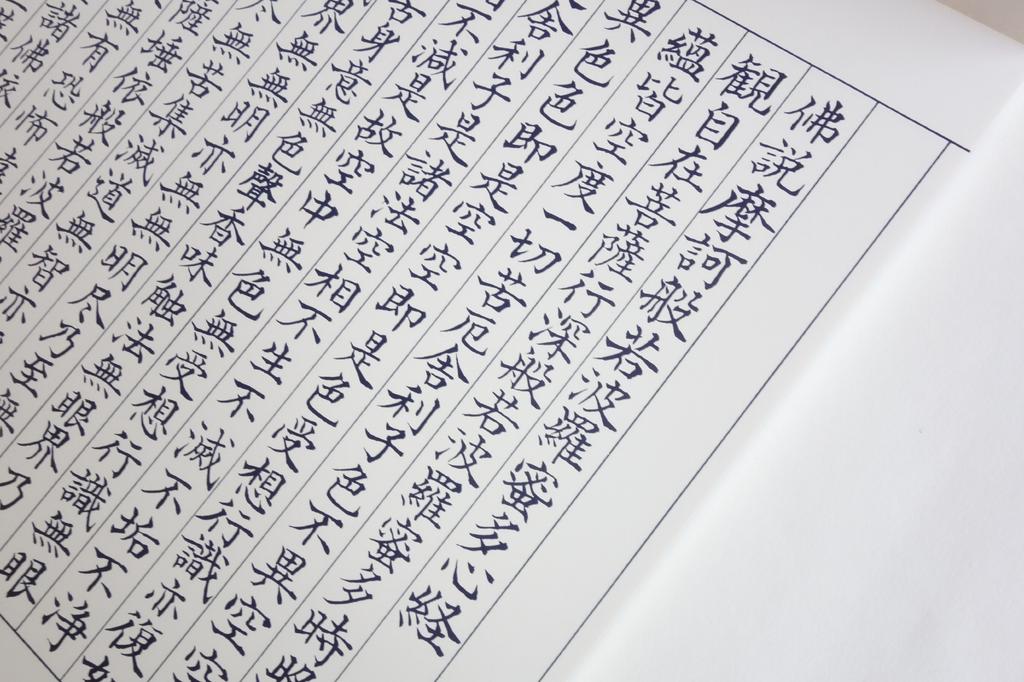 佛説摩訶般若波羅蜜多心経
観自在菩薩行深般若波羅蜜多時照
蘊皆空度一切苦厄舎利子色不異空空
異色色即是空空即是色受想行識亦復如
舎利子是諸法空相不生不滅不垢不浄
不減是故空中無色無受想行識無眼
舌身意無色聲香味触法無眼界乃
界無無明亦無無明尽乃至無
尽無苦集滅道無智亦
薩埵依般若波羅
無有恐怖
諸佛依